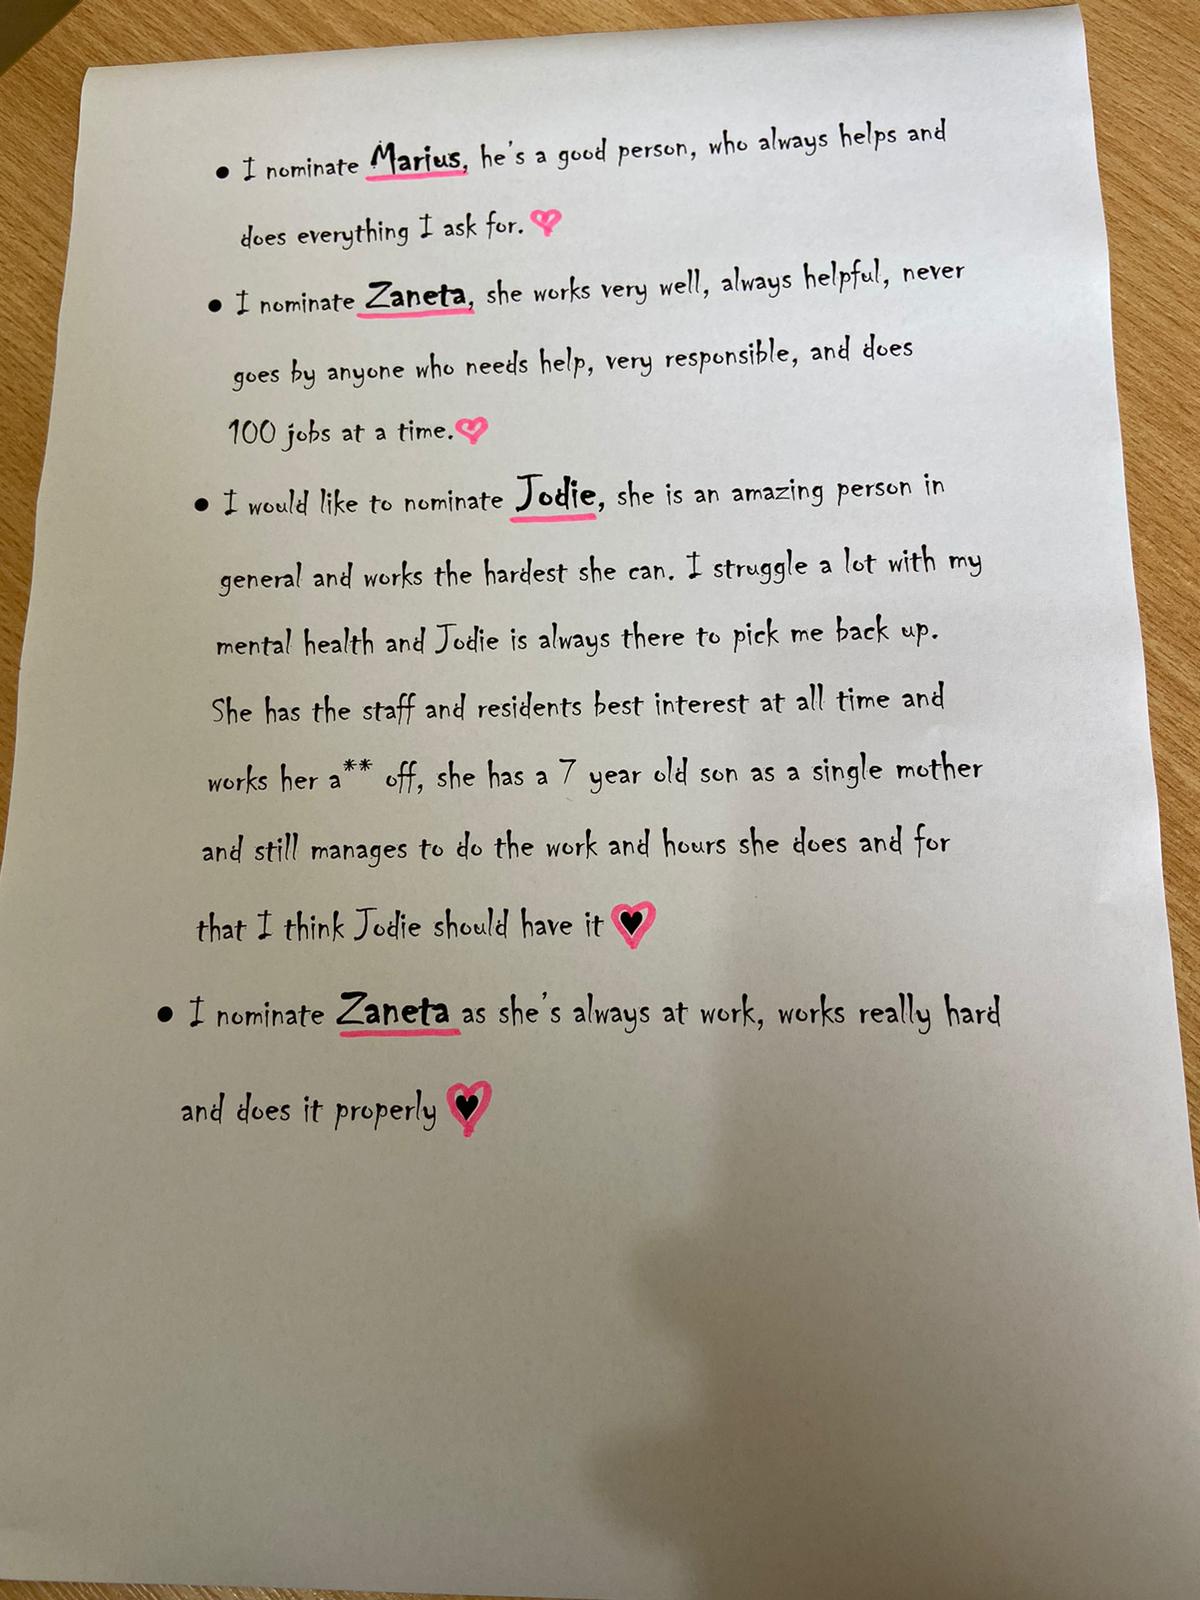 • I nominate Marius, he's a good person, who always helps and
does everything I ask for. ♡
• I nominate Zaneta, she works very well, always helpful, never
goes by anyone who needs help, very responsible, and does
100 jobs at a time. ♡
• I would like to nominate Jodie, she is an amazing person in
general and works the hardest she can. I struggle a lot with my
mental health and Jodie is always there to pick me back up.
She has the staff and residents best interest at all time and
works her a** off, she has a 7 year old son as a single mother
and still manages to do the work and hours she does and for
that I think Jodie should have it ♥
• I nominate Zaneta as she's always at work, works really hard
and does it properly ♥